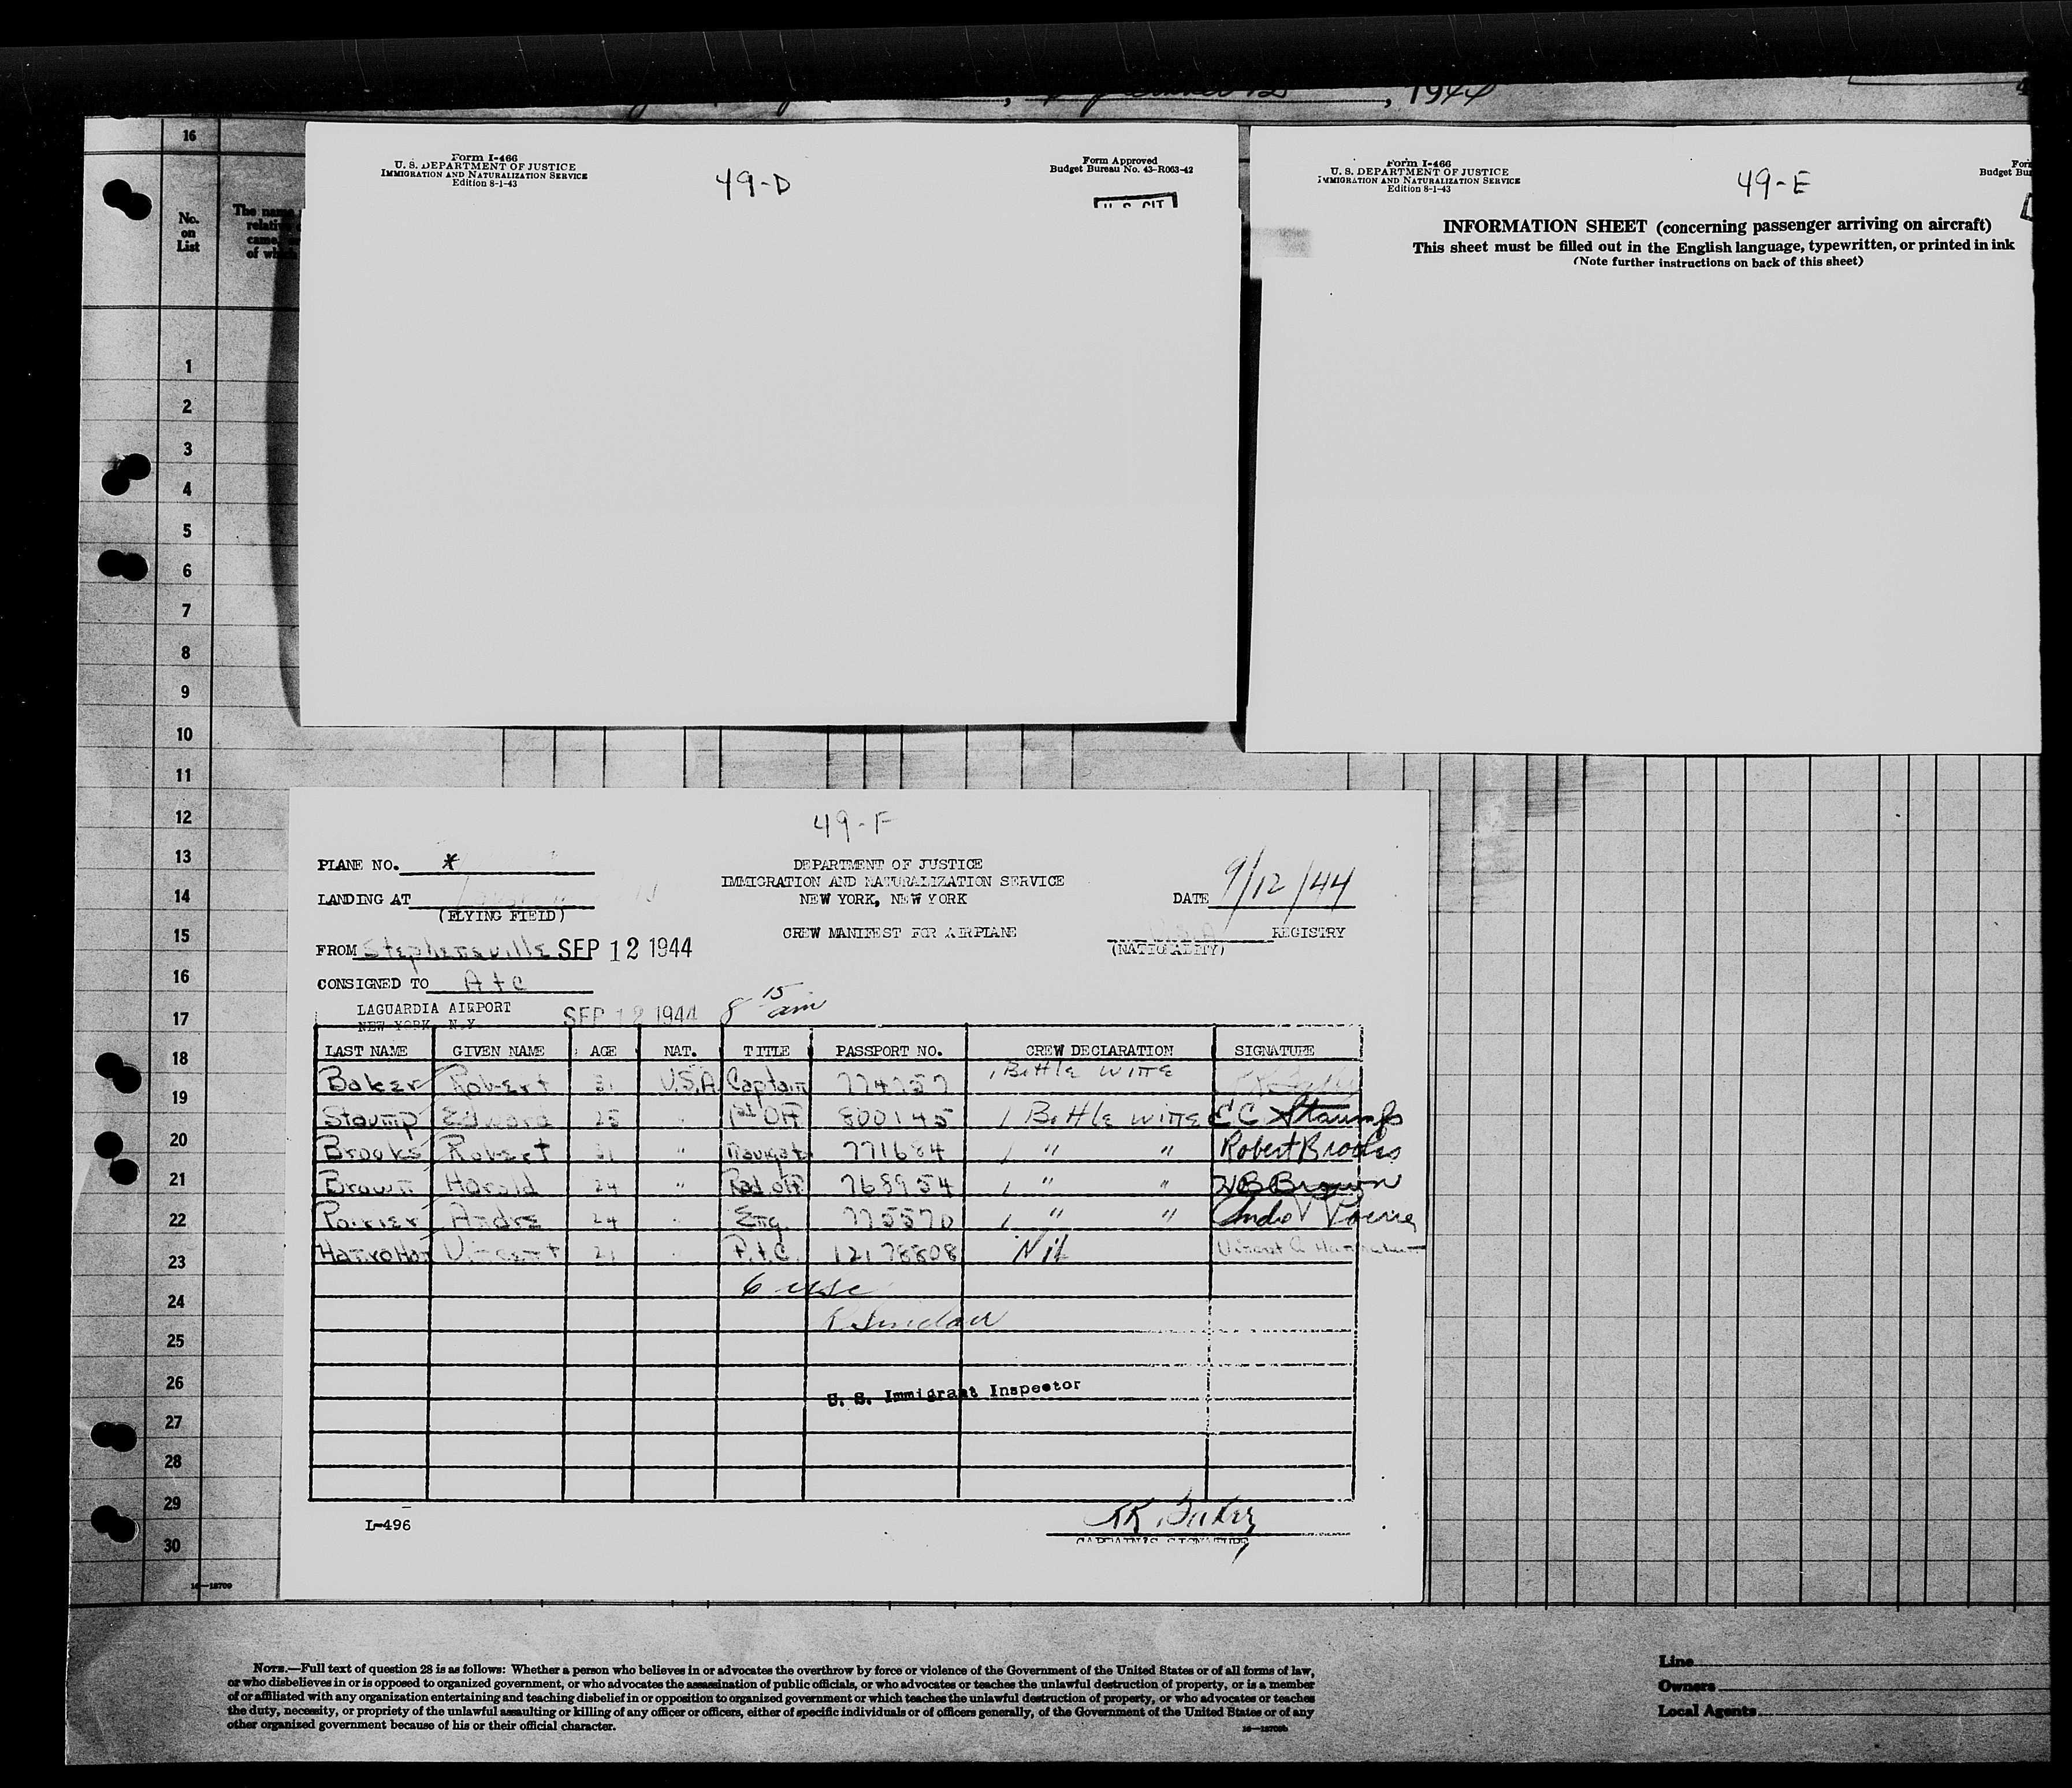 , 1944
16
No.
on
List
The name
relativ
came,
of wh
Form I-466
U. S. DEPARTMENT OF JUSTICE
IMMIGRATION AND NATURALIZATION SERVICE
Edition 8-1-43
49-D
Form Approved
Budget Bureau No. 43-R063-42
U S CIT
Form I-466
U. S. DEPARTMENT OF JUSTICE
IMMIGRATION AND NATURALIZATION SERVICE
Edition 8-1-43
49-E
For
Budget Bu
INFORMATION SHEET (concerning passenger arriving on aircraft)
This sheet must be filled out in the English language, typewritten, or printed in ink
(Note further instructions on back of this sheet)
1
2
3
4
5
6
7
8
9
10
11
12
13
14
15
16
17
18
19
20
21
22
23
24
25
26
27
28
29
30
16—18709
49-F
PLANE NO. *
DEPARTMENT OF JUSTICE
IMMIGRATION AND NATURALIZATION SERVICE
NEW YORK, NEW YORK
LANDING AT
(FLYING FIELD)
DATE 9/12/44
CREW MANIFEST FOR AIRPLANE
REGISTRY
(NATIONALITY)
FROM Stephensville SEP 12 1944
CONSIGNED TO AtC
LAGUARDIA AIRPORT
NEW YORK, N.Y
SEP 12 1944 8 15 am
LAST NAME GIVEN NAME AGE NAT. TITLE PASSPORT NO. CREW DECLARATION SIGNATURE
Baker Robert 31 U.S.A Captain 774757 1 Bottle wine
Stoump Edward 25 " 1st Off 800145 1 Bottle wine E C Stoump
Brooks Robert 31 " Navigat 771684 1 " " Robert Brooks
Brown Harold 24 " Rad off 768954 1 " " HB Brown
Poirier Andre 24 " Eng. 775570 1 " " Andre V Poirier
Hanrahan Vincent 21 " P.t.C. 12178808 Nil Vincent A Hanrahan
6 usc
R Sinclair
U. S. Immigrant Inspector
L-496
RR Baker
CAPTAIN'S SIGNATURE
NOTE.—Full text of question 28 is as follows: Whether a person who believes in or advocates the overthrow by force or violence of the Government of the United States or of all forms of law,
or who disbelieves in or is opposed to organized government, or who advocates the assassination of public officials, or who advocates or teaches the unlawful destruction of property, or is a member
of or affiliated with any organization entertaining and teaching disbelief in or opposition to organized government or which teaches the unlawful destruction of property, or who advocates or teaches
the duty, necessity, or propriety of the unlawful assaulting or killing of any officer or officers, either of specific individuals or of officers generally, of the Government of the United States or of any
other organized government because of his or their official character.
16—18709b
Line
Owners
Local Agents